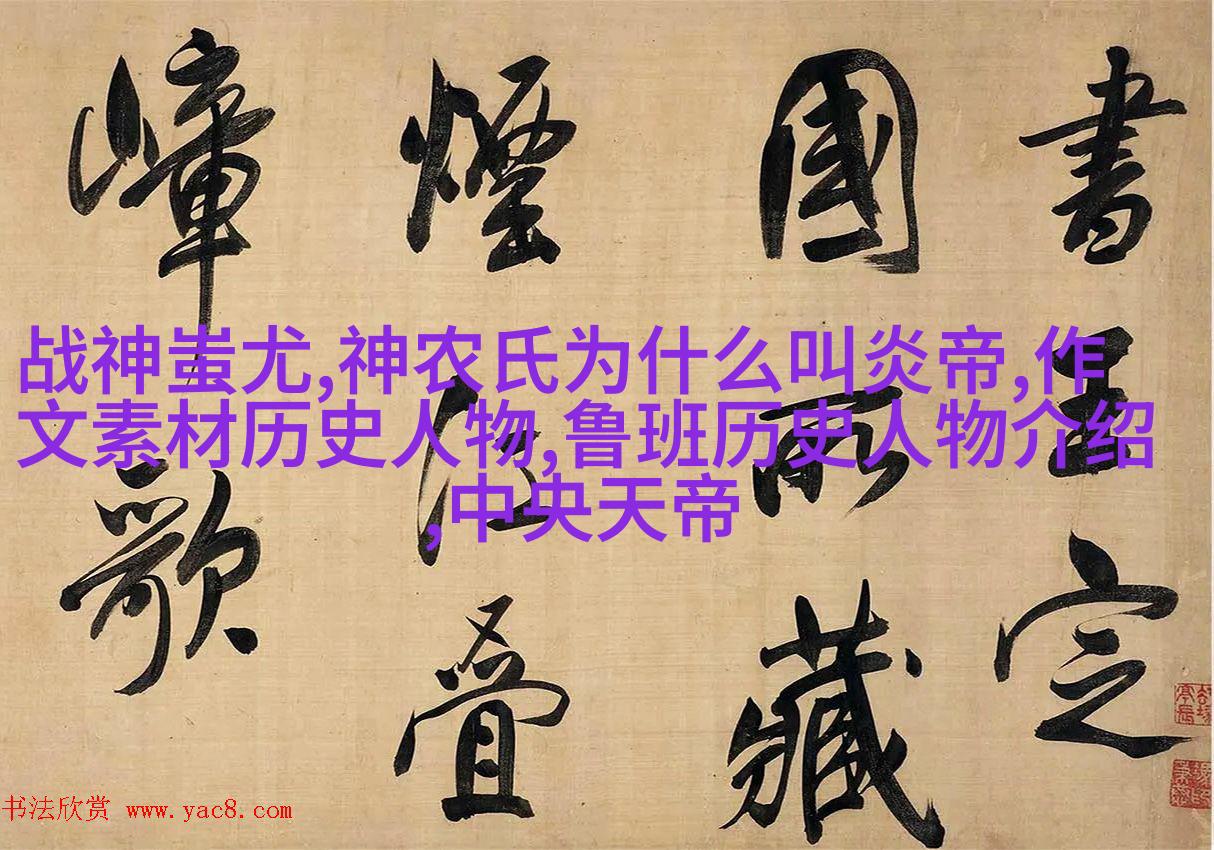 書王定
國所藏
煙江疊
嶂歌
战神蚩尤,神农氏为什么叫炎帝,作
文素材历史人物,鲁班历史人物介绍
,中央天帝
书法欣赏 www.yac8.com